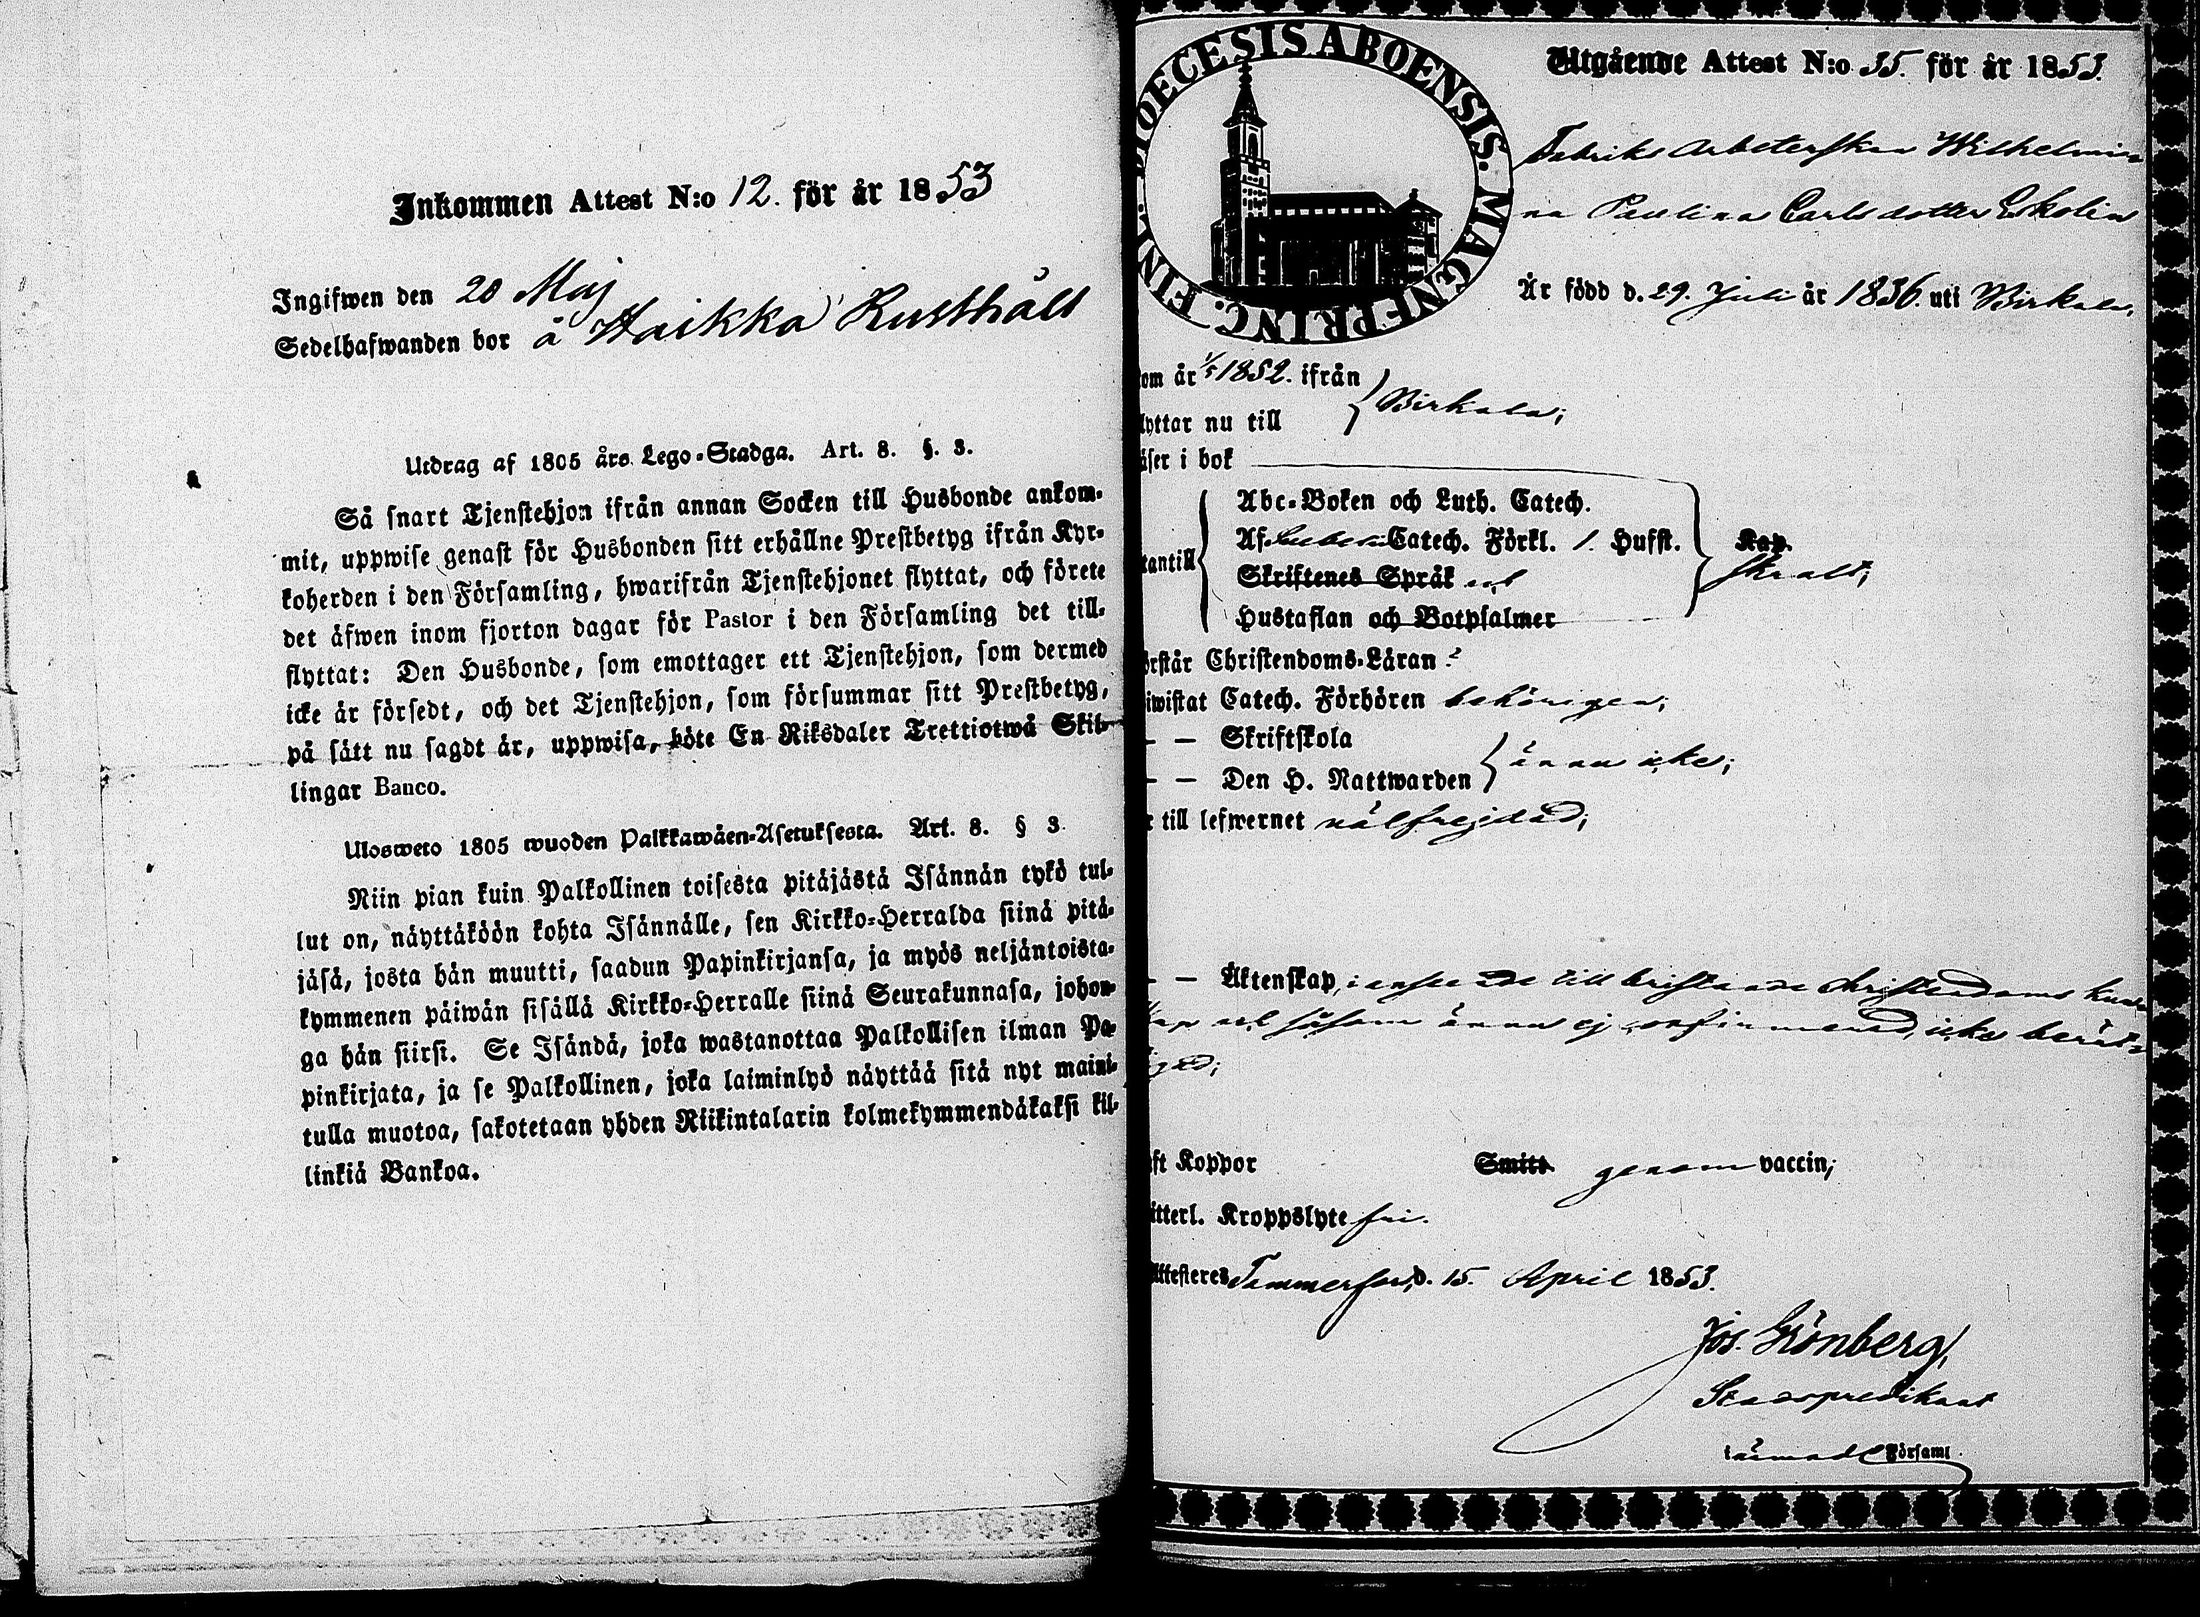 Inkommen Attest N:o 12. för år 1853
Ingifwen den 20 Maj
Sedelhafwanden bor å Haikka Rusthåll
Utdrag af 1805 års Lego-Stadga. Art. 8. §. 3.
Så snart Tjenstehjon ifrån annan Socken till Husbonde ankom-
mit, uppwise genast för Husbonden sitt erhållne Prestbetyg ifrån Kyr-
koherden i den Församling, hwarifrån Tjenstehjonet flyttat, och förete
det äfwen inom fjorton dagar för Pastor i den Församling det till-
flyttat: Den Husbonde, som emottager ett Tjenstehjon, som dermed
icke är försedt, och det Tjenstehjon, som försummar sitt Prestbetyg,
på sätt nu sagdt är, uppwisa, böte En Riksdaler Trettiotwå Skil-
lingar Banco.
Ulosweto 1805 wuoden Palkkawäen-Asetuksesta. Art. 8. § 3.
Niin pian kuin Palkollinen toisesta pitäjästä Isännän tykö tul-
lut on, näyttäköön kohta Isännälle, sen Kirkko-Herralda siinä pitä-
jäsä, josta hän muutti, saadun Papinkirjansa, ja myös neljäntoista-
kymmenen päiwän sisällä Kirkko-Herralle siinä Seurakunnasa, johon-
ga hän siirsi. Se Isändä, joka wastanottaa Palkollisen ilman Pa-
pinkirjata, ja se Palkollinen, joka laiminlyö näyttää sitä nyt maini-
tulla muotoa, sakotetaan yhden Riikintalarin kolmekymmendäkaksi kil-
linkiä Bankoa.
DIOECESIS ABOENSIS. MAGNI PRINC. FINL.
Utgående Attest N:o 35. för år 1853.
Fabriks Arbeterskan Wilhelmi-
na Paulina Carlsdotter Ekolin
Är född d. 29. Juli år 1836. uti Birkala,
om år 1/5 1852. ifrån
lyttar nu till } Birkala;
äser i bok
Abc-Boken och Luth. Catech.
Af Catech. Förkl. 1. Hufst. Kap.
tantill Skriftenes Språk och skralt;
Hustaflan och Botpsalmer
örstår Christendoms-Läran
iwistat Catech. Förhören behörigen;
— — Skriftskola
— — Den H. Nattwarden } ännu icke;
r till lefwernet välfrejdad;
— — Äktenskap, i anseende till bristande Christendoms kun-
kap och såsom ännu ej confirmerad, icke berät-
igad;
ft Koppor Smitt genom vaccin;
itterl. Kroppslyte fri.
Attesteres Tammerfors, d. 15. April 1853.
Jos. Grönberg,
Stadspredikant
Församl.